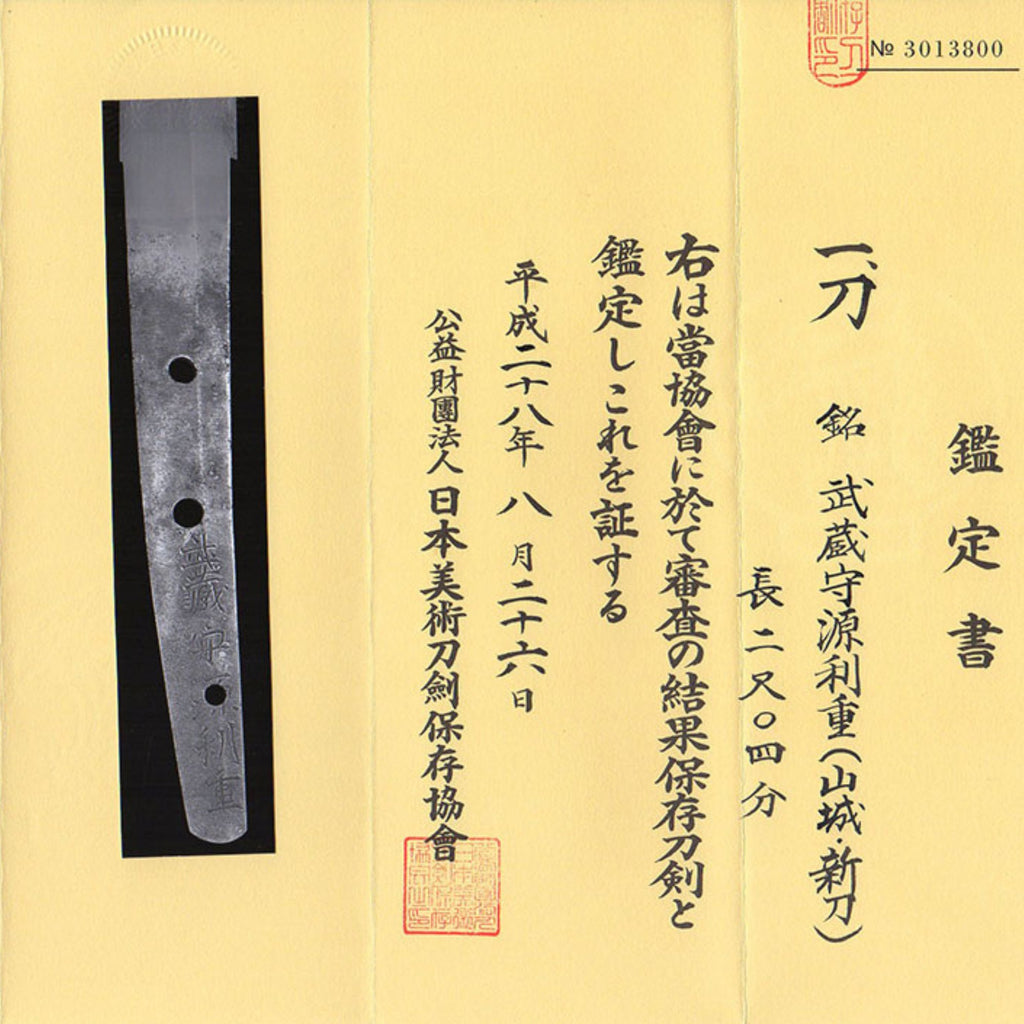 № 3013800
鑑定書
一、刀 銘 武蔵守源利重(山城・新刀)
長二尺〇四分
右は當協會に於て審査の結果保存刀剣と
鑑定しこれを証する
平成二十八年 八月二十六日
公益財團法人 日本美術刀劍保存協會
武蔵守源利重